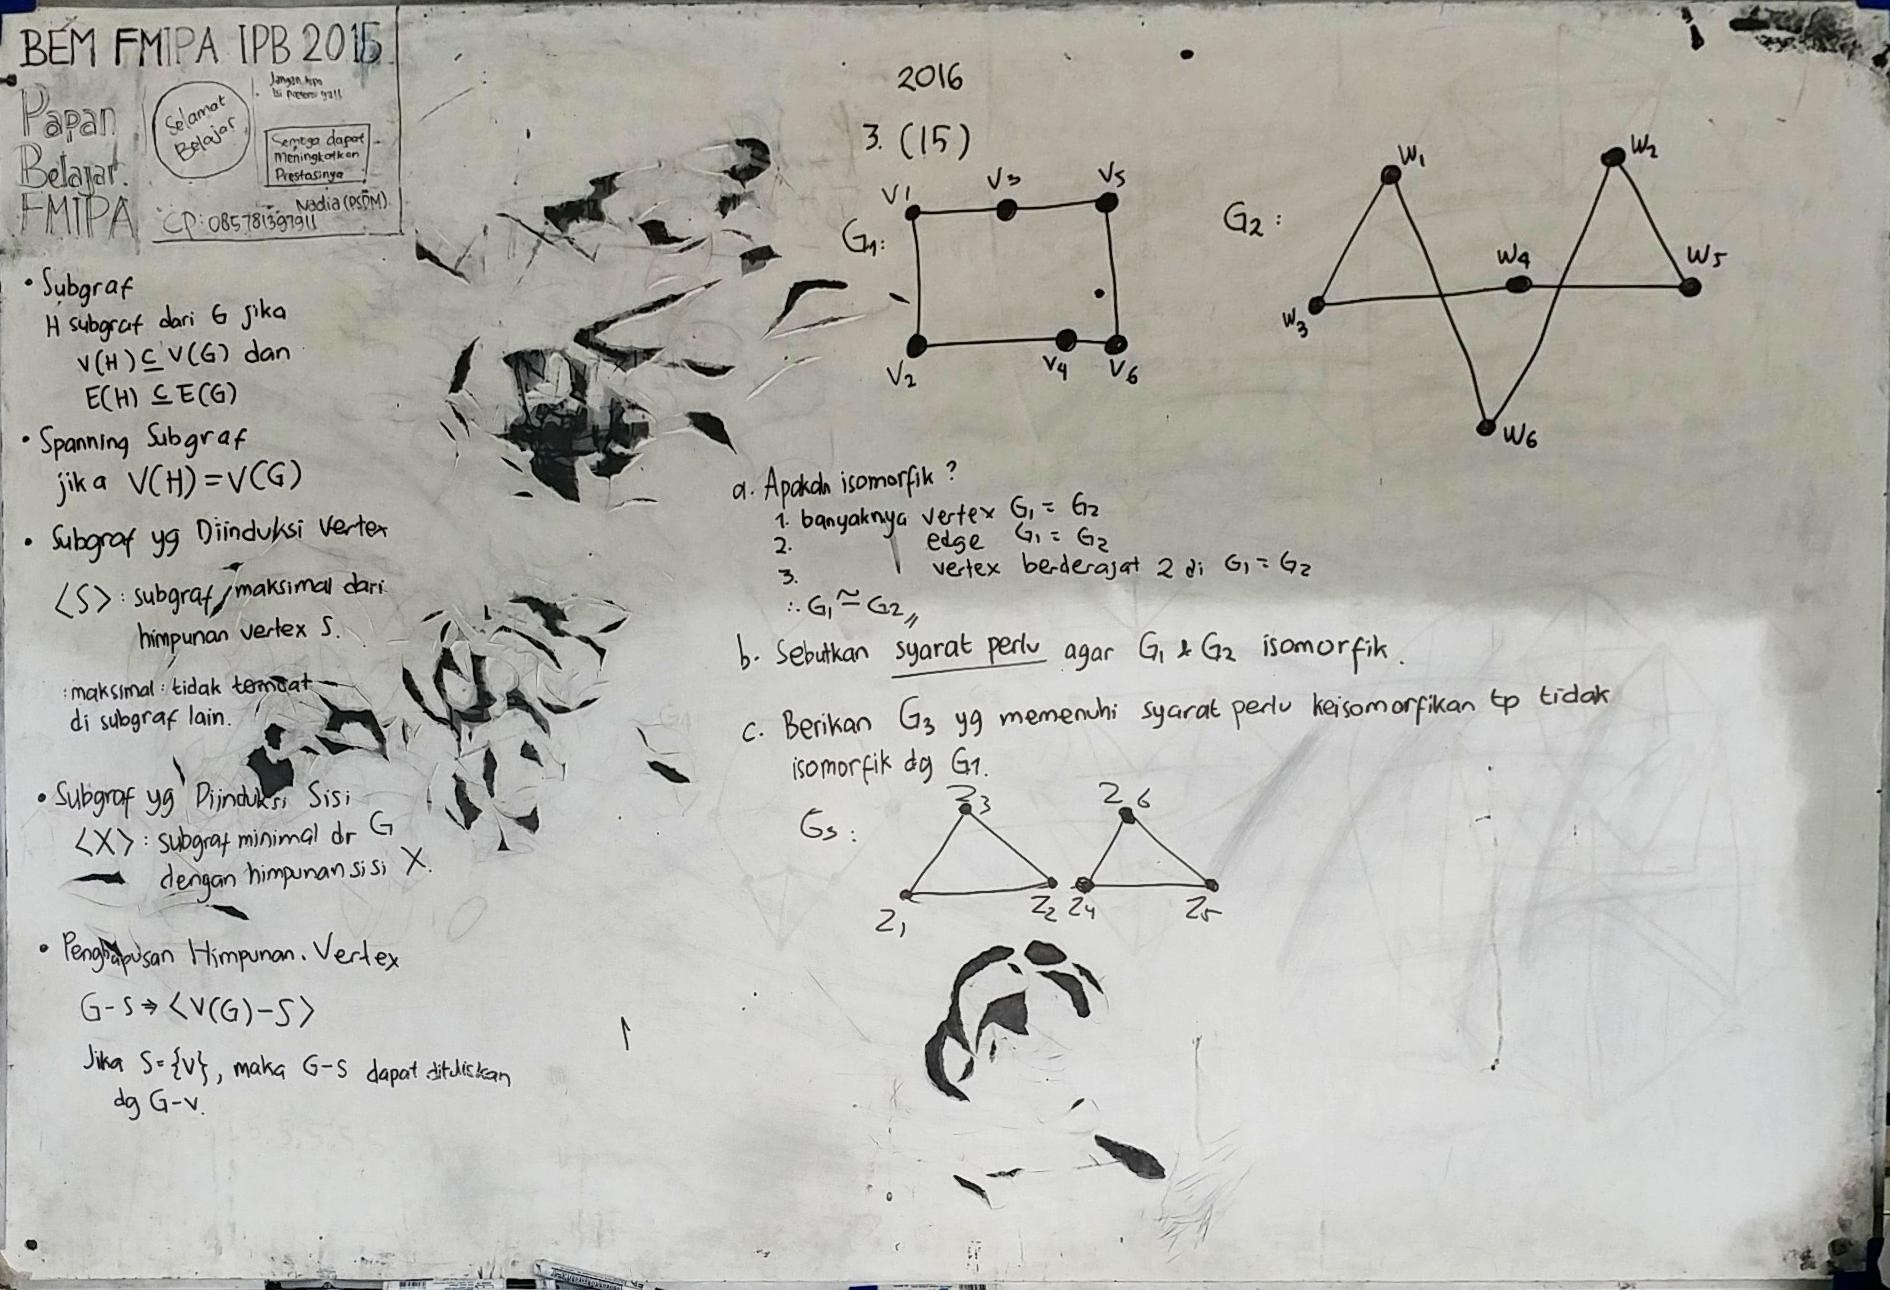 BEM FMIPA IPB 2015
Papan
Belajar.
FMIPA
Selamat
Belajar
Semoga dapat
Meningkatkan
Prestasinya
Nadia (PSDM)
CP: 085781397911
• Subgraf
H subgraf dari G jika
V(H) ⊆ V(G) dan
E(H) ⊆ E(G)
• Spanning Subgraf
jika V(H) = V(G)
• Subgraf yg Diinduksi Vertex
<S> : subgraf maksimal dari
himpunan vertex S.
: maksimal : tidak
di subgraf lain.
• Subgraf yg Diinduksi Sisi
<X> : subgraf minimal dr G
dengan himpunan sisi X.
• Penghapusan Himpunan Vertex
G-S → <V(G)-S>
Jika S={V}, maka G-S dapat dituliskan
dg G-v.
2016
3. (15)
G1:
V1 V3 V5
V2 V4 V6
G2:
W1 W2
W4 W5
W3
W6
a. Apakah isomorfik?
1. banyaknya vertex G1 = G2
2. edge G1 = G2
3. vertex berderajat 2 di G1 = G2
∴ G1 ≅ G2 //
b. Sebutkan syarat perlu agar G1 & G2 isomorfik.
c. Berikan G3 yg memenuhi syarat perlu keisomorfikan tp tidak
isomorfik dg G1.
G3:
Z3 Z6
Z1 Z2 Z4 Z5